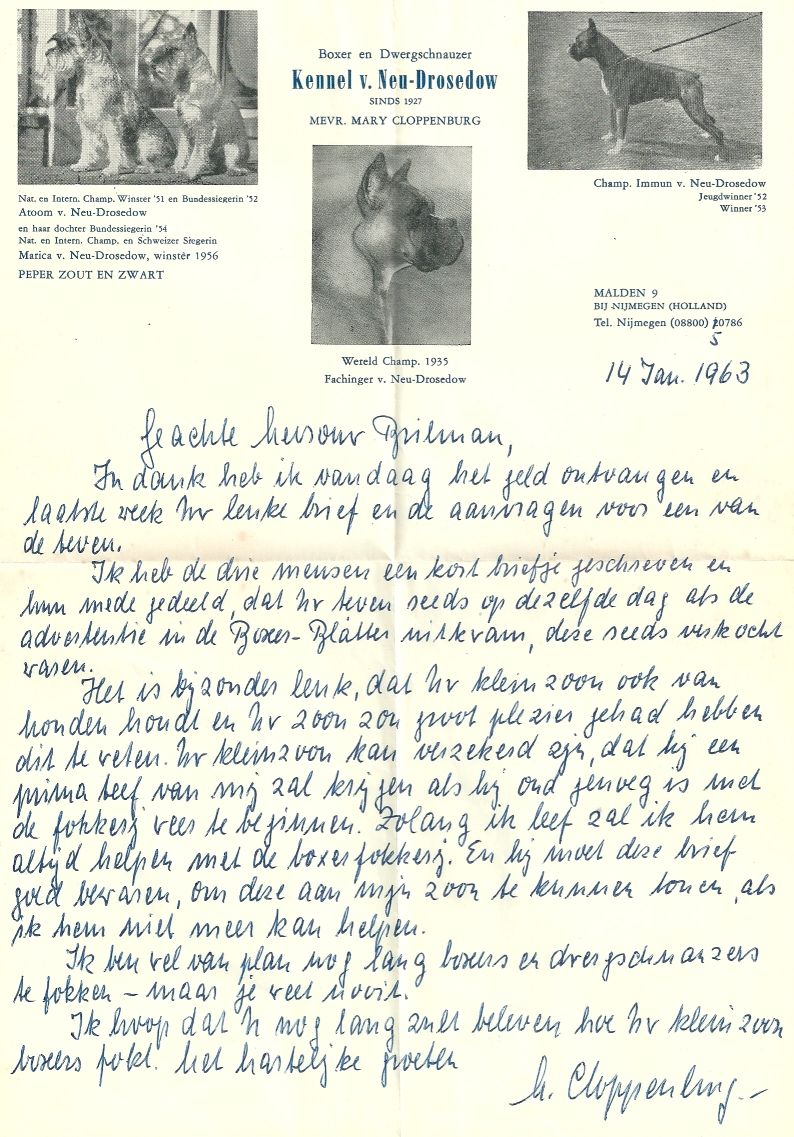 Boxer en Dwergschnauzer
Kennel v. Neu-Drosedow
SINDS 1927
MEVR. MARY CLOPPENBURG
Nat. en Intern. Champ. Winster '51 en Bundessiegerin '52
Atoom v. Neu-Drosedow
en haar dochter Bundessiegerin '54
Nat. en Intern. Champ. en Schweizer Siegerin
Marica v. Neu-Drosedow, winster 1956
PEPER ZOUT EN ZWART
Champ. Immun v. Neu-Drosedow
Jeugdwinner '52
Winner '53
Wereld Champ. 1935
Fachinger v. Neu-Drosedow
MALDEN 9
BIJ NIJMEGEN (HOLLAND)
Tel. Nijmegen (08800) 10786
5
14 Jan. 1963
Geachte hersour Brilman,
In dank heb ik vandaag het geld ontvangen en
laatste week Uw leuke brief en de aanvragen voor een van
de teven.
Ik heb de drie mensen een kort briefje geschreven en
hun mede gedeeld, dat Uw teven reeds op dezelfde dag als de
advertentie in de Boxer-Blätter uitkwam, deze reeds verkocht
waren.
Het is bijzonder leuk, dat Uw kleinzoon ook van
honden houdt en Uw zoon zou groot plezier gehad hebben
dit te weten. Uw kleinzoon kan verzekerd zijn, dat hij een
prima teef van mij zal krijgen als hij oud genoeg is met
de fokkerij weer te beginnen. Zolang ik leef zal ik hem
altijd helpen met de boxerfokkerij. En hij moet deze brief
goed bewaren, om deze aan mijn zoon te kunnen tonen, als
ik hem niet meer kan helpen.
Ik ben wel van plan nog lang boxers en dwergschnauzers
te fokken – maar je weet nooit.
Ik hoop dat U nog lang zult beleven hoe Uw kleinzoon
boxers fokt. Met hartelijke groeten
M. Cloppenburg.-